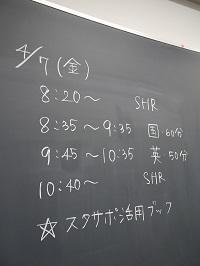 4/7(金)
8:20〜 SHR
8:35〜9:35 国・60分
9:45〜10:35 英 50分
10:40〜 SHR
☆スタサポ活用ブック